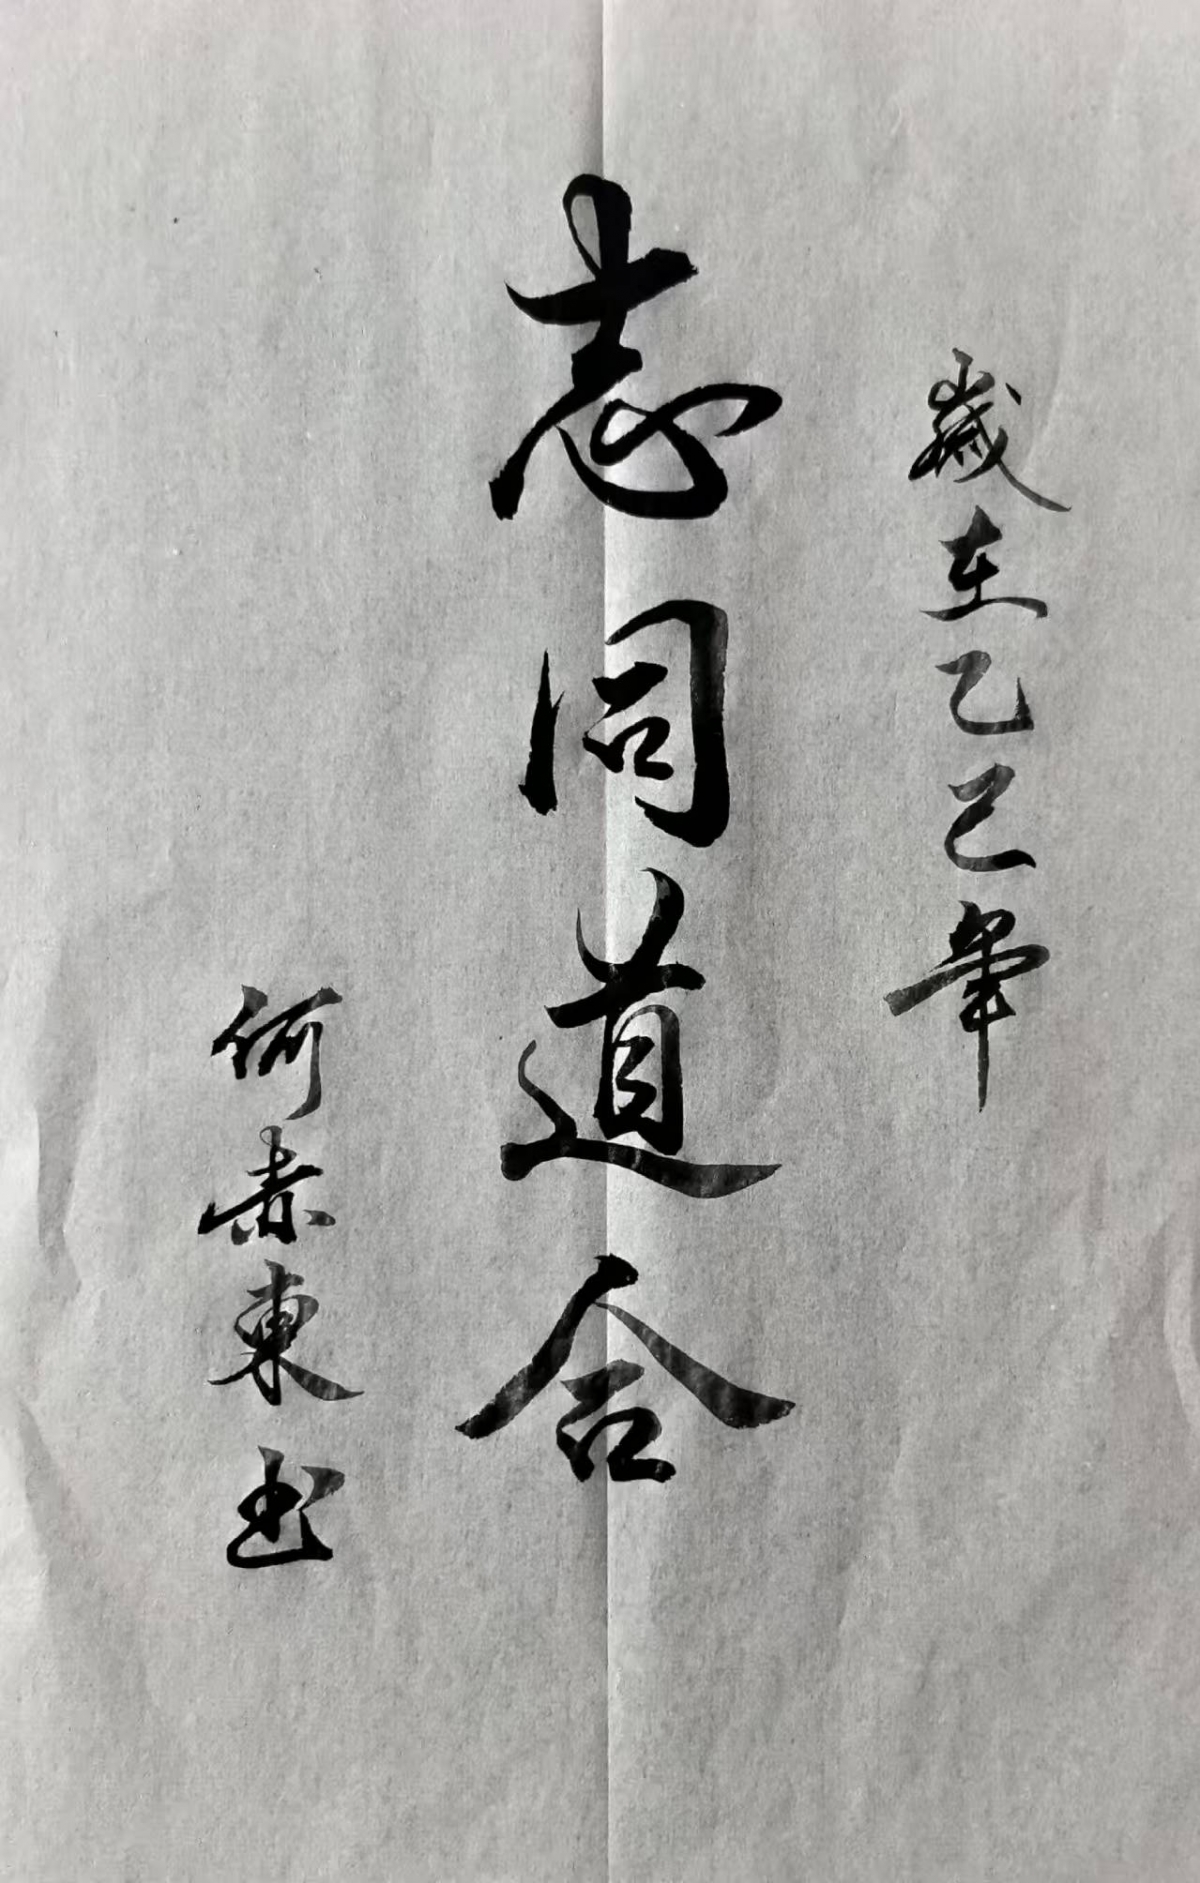 歲在乙巳年
志同道合
何赤東书